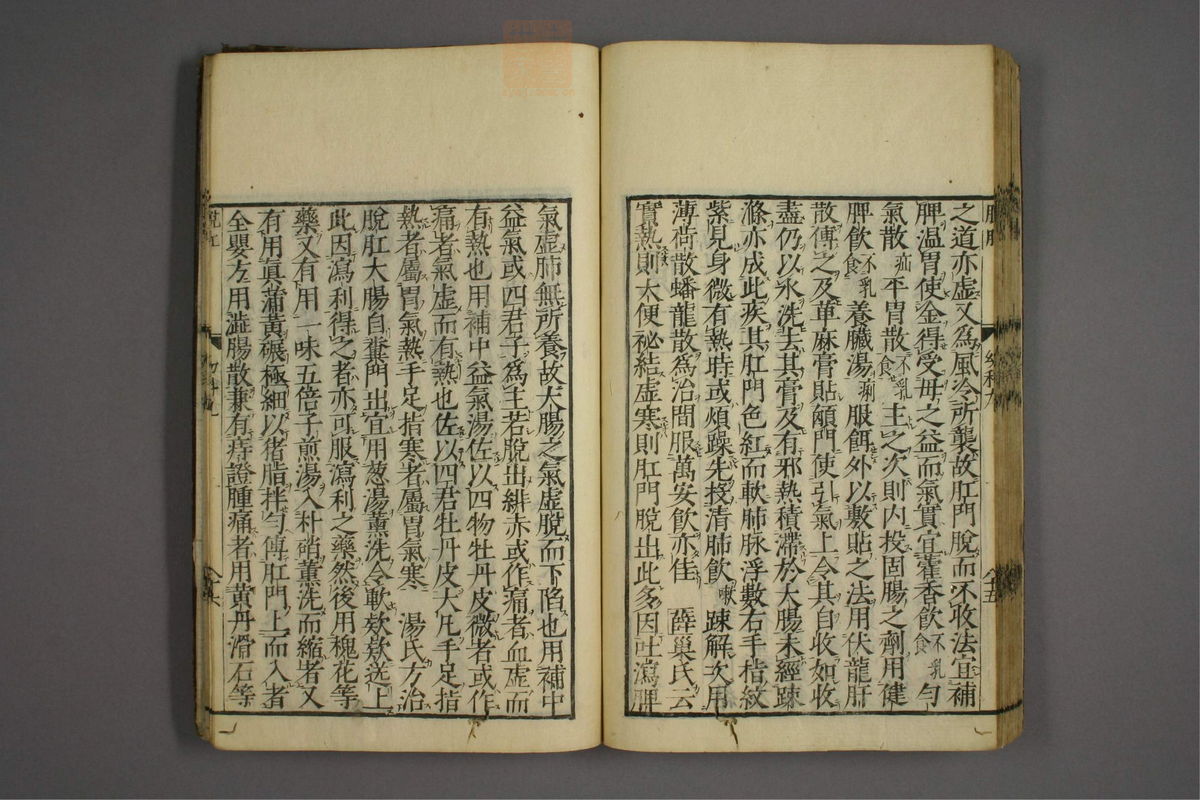 之道亦虛又為風冷所襲故肛門脫而不收法宜補
脾溫胃使金得受母之益而氣實宜藿香飲不乳食勻
氣散疝平胃散不乳食主之次則內投固腸之劑用健
脾飲不乳食養臟湯痢服餌外以敷貼之法用伏龍肝
散傅之及萆麻膏貼顖門使引氣上令其自收如收
盡仍以水洗去其膏及有邪熱積滯於大腸未經疎
滌亦成此疾其肛門色紅而軟肺脉浮數右手指紋
紫見身微有熱時或煩躁先投清肺飲嗽疎解次用
薄荷散蟠龍散為治間服萬安飲亦佳 薛巢氏云
實熱則大便祕結虛寒則肛門脫出此多因吐瀉脾
氣虛肺無所養故大腸之氣虛脫而下陷也用補中
益氣或四君子為主若脫出緋赤或作痛者血虛而
有熱也用補中益氣湯佐以四物牡丹皮微者或作
痛者氣虛而有熱也佐以四君牡丹皮大凡手足指
熱者屬胃氣熱手足指寒者屬胃氣寒 湯氏方治
脫肛大腸自糞門出宜用葱湯薰洗令軟欸欸送上
此因瀉利得之者亦可服瀉利之藥然後用槐花等
藥又有用一味五倍子煎湯入朴硝薰洗而縮者又
有用眞蒲黃碾極細以猪脂拌勻傅肛門上而入者
全嬰方用澁腸散兼有痔證腫痛者用黃丹滑石等
脫肛